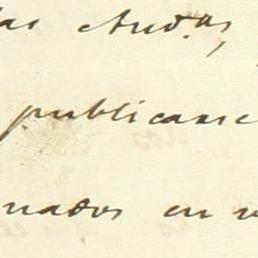 las Aud.as,
publicase
nados en v